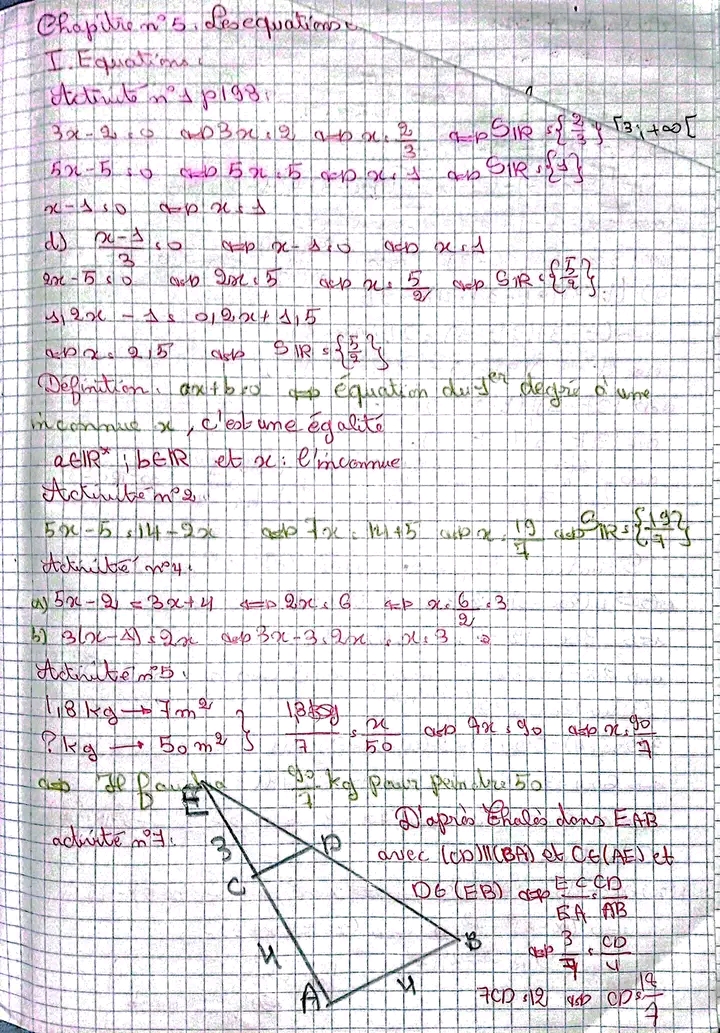 Chapitre n°5. Les equations
I. Equations:
Activité n°1 p198:
3x-2=0 ⟺ 3x=2 ⟺ x=2/3 ⟺ SIR={2/3} [3;+∞[
5x-5=0 ⟺ 5x=5 ⟺ x=1 ⟺ SIR={1}
x-1=0 ⟺ x=1
d) (x-1)/3=0 ⟺ x-1=0 ⟺ x=1
2x-5=0 ⟺ 2x=5 ⟺ x=5/2 ⟺ SIR={5/2}
1,2x-1=0,2x+1,5
⟺ x=2,5 ⟺ SIR={5/2}
Définition. ax+b=0 ⟺ équation du 1er degrié à une
inconnue x, c'est une égalité
a∈IR*; b∈IR et x: l'inconnue
Activité n°2
5x-5=14-2x ⟺ 7x=14+5 ⟺ x=19/7 ⟺ SIR={19/7}
Activité n°4.
a) 5x-2=3x+4 ⟺ 2x=6 ⟺ x=6/2=3
b) 3(x-1)=2x ⟺ 3x-3=2x, x=3
Activité n°5.
1,8 kg → 7m²
?kg → 50m² } /7 = x/50 ⟺ 7x=90 ⟺ x=90/7
⟺ Il faudra 90/7 kg pour peindre 50
activité n°7:
E
3
C
D
4
A
4
B
D'après Thalès dans EAB
avec (CD)||(BA) et C∈(AE) et
D∈(EB) ⟺ EC/EA=CD/AB
⟺ 3/7=CD/4
7CD=12 ⟺ CD=12/7